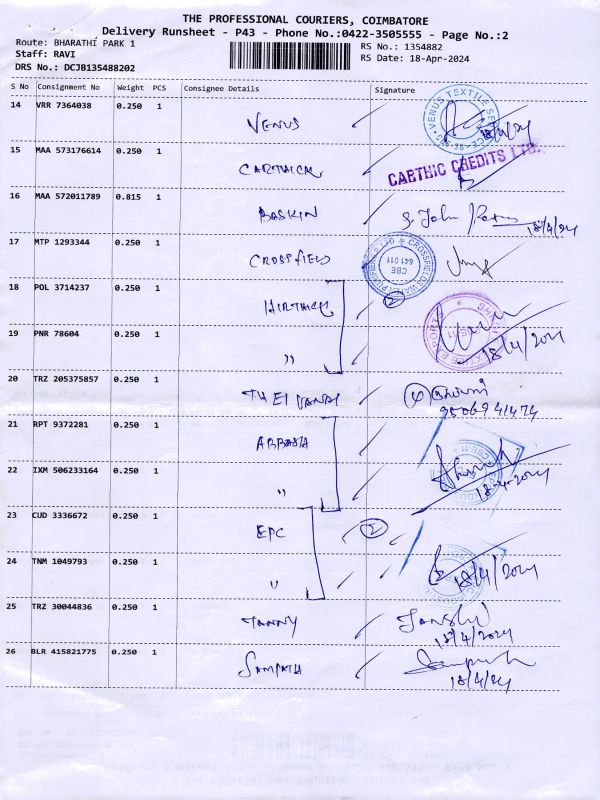 THE PROFESSIONAL COURIERS, COIMBATORE
Delivery Runsheet - P43 - Phone No.:0422-3505555 - Page No.:2
Route: BHARATHI PARK 1 RS No.: 1354882
Staff: RAVI RS Date: 18-Apr-2024
DRS No.: DCJB135488202
S No Consignment No Weight PCS Consignee Details Signature
14 VRR 7364038 0.250 1 VENUS VENUS TEXTILE 18/4/24
15 MAA 573176614 0.250 1 CARTHICK CARTHIC CREDITS LTD.
16 MAA 572011789 0.815 1 BASKIN S. John 18/4/24
17 MTP 1293344 0.250 1 CROSSFIELD CROSSFIELDS WATER CBE 641 011
18 POL 3714237 0.250 1 HIRTHICK 2
19 PNR 78604 0.250 1 " 18/4/2024
20 TRZ 205375857 0.250 1
21 RPT 9372281 0.250 1 ABBASIA
22 IXM 506233164 0.250 1 " 18-4-2024
23 CUD 3336672 0.250 1 EPC 2
24 TNM 1049793 0.250 1 " 18/4/2024
25 TRZ 30044836 0.250 1 TANNY 18/4/2024
26 BLR 415821775 0.250 1 SAMPATH 18/4/24